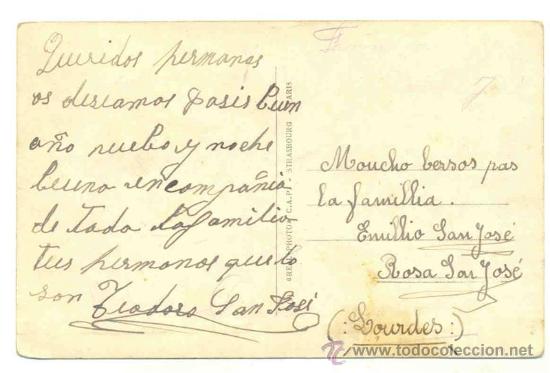 Queridos hermanos
os deseamos pasis buen
año nuebo y noche
buena en compañia
de toda la familia
tus hermanos que lo
son Teodoro San José
C.A.P. - STRASBOURG
PARIS
7
Moucho bersos pas
la famillia.
Emillio San José
Rosa San José
(:Lourdes:)
www.todocoleccion.net